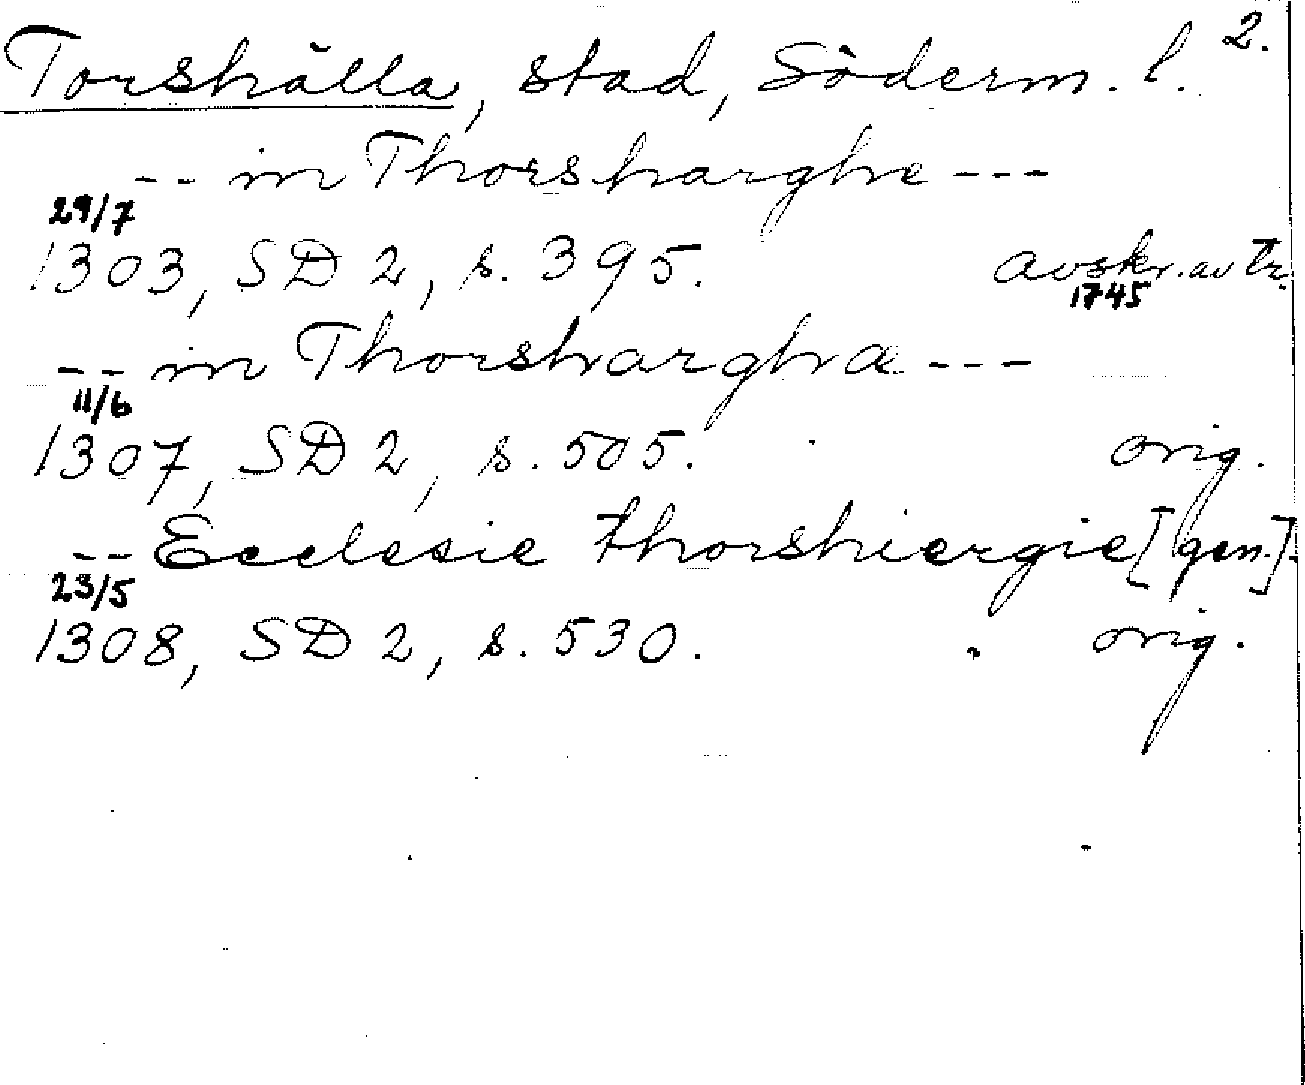 2.
Torshälla, stad, Söderm. l.
-- in Thorsharghe ---
29/7
1303, SD 2, s. 395. avskr. av tr.
1745
-- in Thorsharghæ ---
11/6
1307, SD 2, s. 505. orig.
-- Ecclesie thorshiergie [gen.].
23/5
1308, SD 2, s. 530. orig.